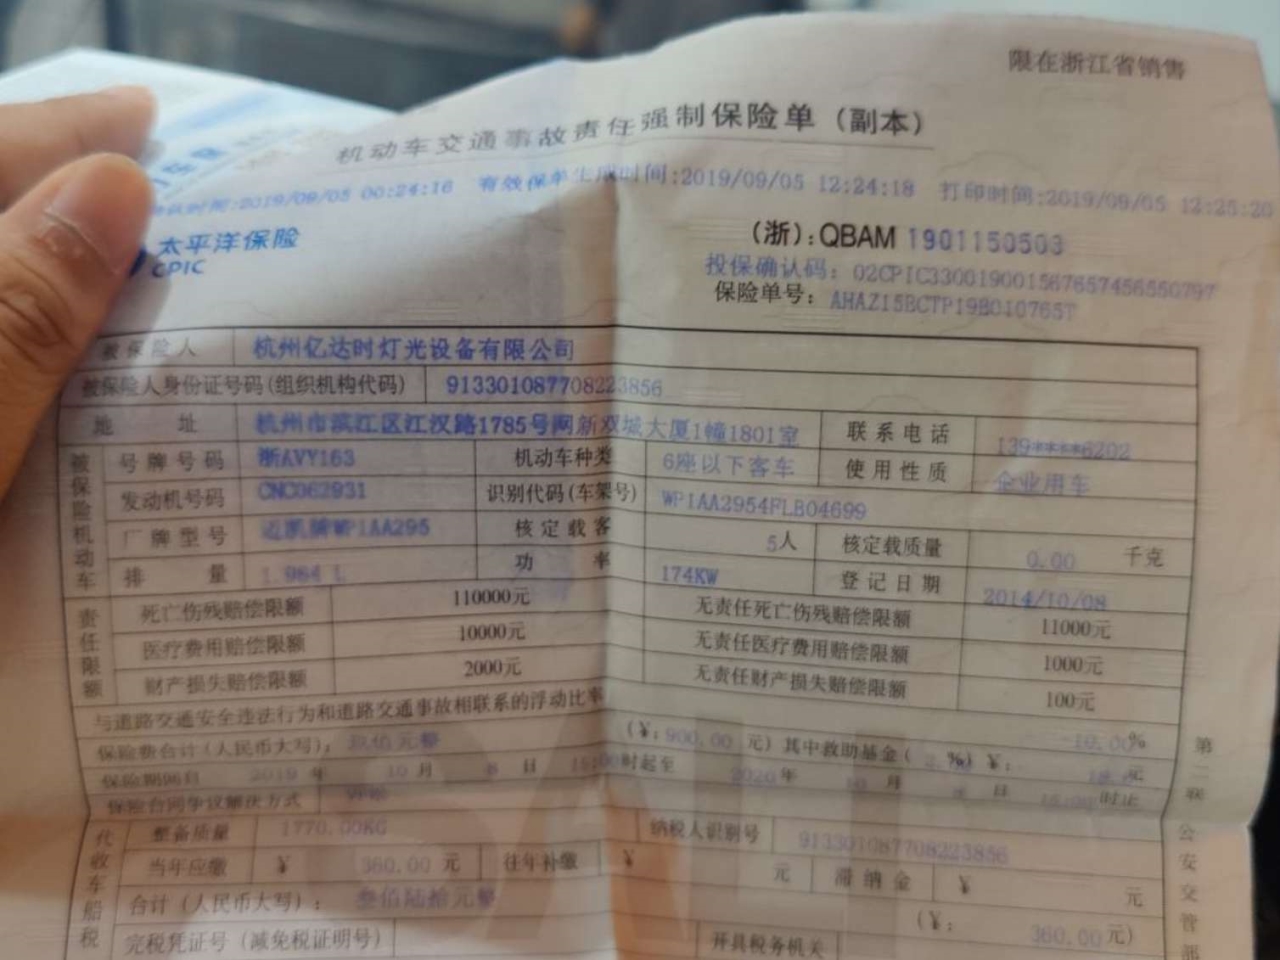 限在浙江省销售
机动车交通事故责任强制保险单（副本）
时间:2019/09/05 00:24:16 有效保单生成时间:2019/09/05 12:24:18 打印时间:2019/09/05 12:25:20
太平洋保险
CPIC
（浙）: QBAM 1901150503
投保确认码: 02CPIC330019001567657456550797
保险单号: AHAZ15BCTP19B010765T
被保险人 杭州亿达时灯光设备有限公司
被保险人身份证号码(组织机构代码) 913301087708223856
地 址 杭州市滨江区江汉路1785号网新双城大厦1幢1801室 联系电话 139****6202
被保险机动车
号牌号码 浙AVY163 机动车种类 6座以下客车 使用性质 企业用车
发动机号码 CNC062931 识别代码(车架号) WP1AA2954FLB04699
厂牌型号 WP1AA295 核定载客 5人 核定载质量 0.00 千克
排 量 1.984 L 功 率 174KW 登记日期 2014/10/08
责任限额
死亡伤残赔偿限额 110000元 无责任死亡伤残赔偿限额 11000元
医疗费用赔偿限额 10000元 无责任医疗费用赔偿限额 1000元
财产损失赔偿限额 2000元 无责任财产损失赔偿限额 100元
与道路交通安全违法行为和道路交通事故相联系的浮动比率 %
保险费合计(人民币大写): 玖佰元整 (￥: 900.00 元) 其中救助基金( %) ￥: 元
保险期间自 2019 年 10 月 日 时起至 2020 年 月 日 时止
保险合同争议解决方式
代收车船税
整备质量 1770.00KG 纳税人识别号 913301087708223856
当年应缴 ￥ 360.00 元 往年补缴 ￥ 元 滞纳金 ￥ 元
合计(人民币大写): 叁佰陆拾元整 (￥: 360.00 元)
完税凭证号(减免税证明号) 开具税务机关
第二联 公安交管部